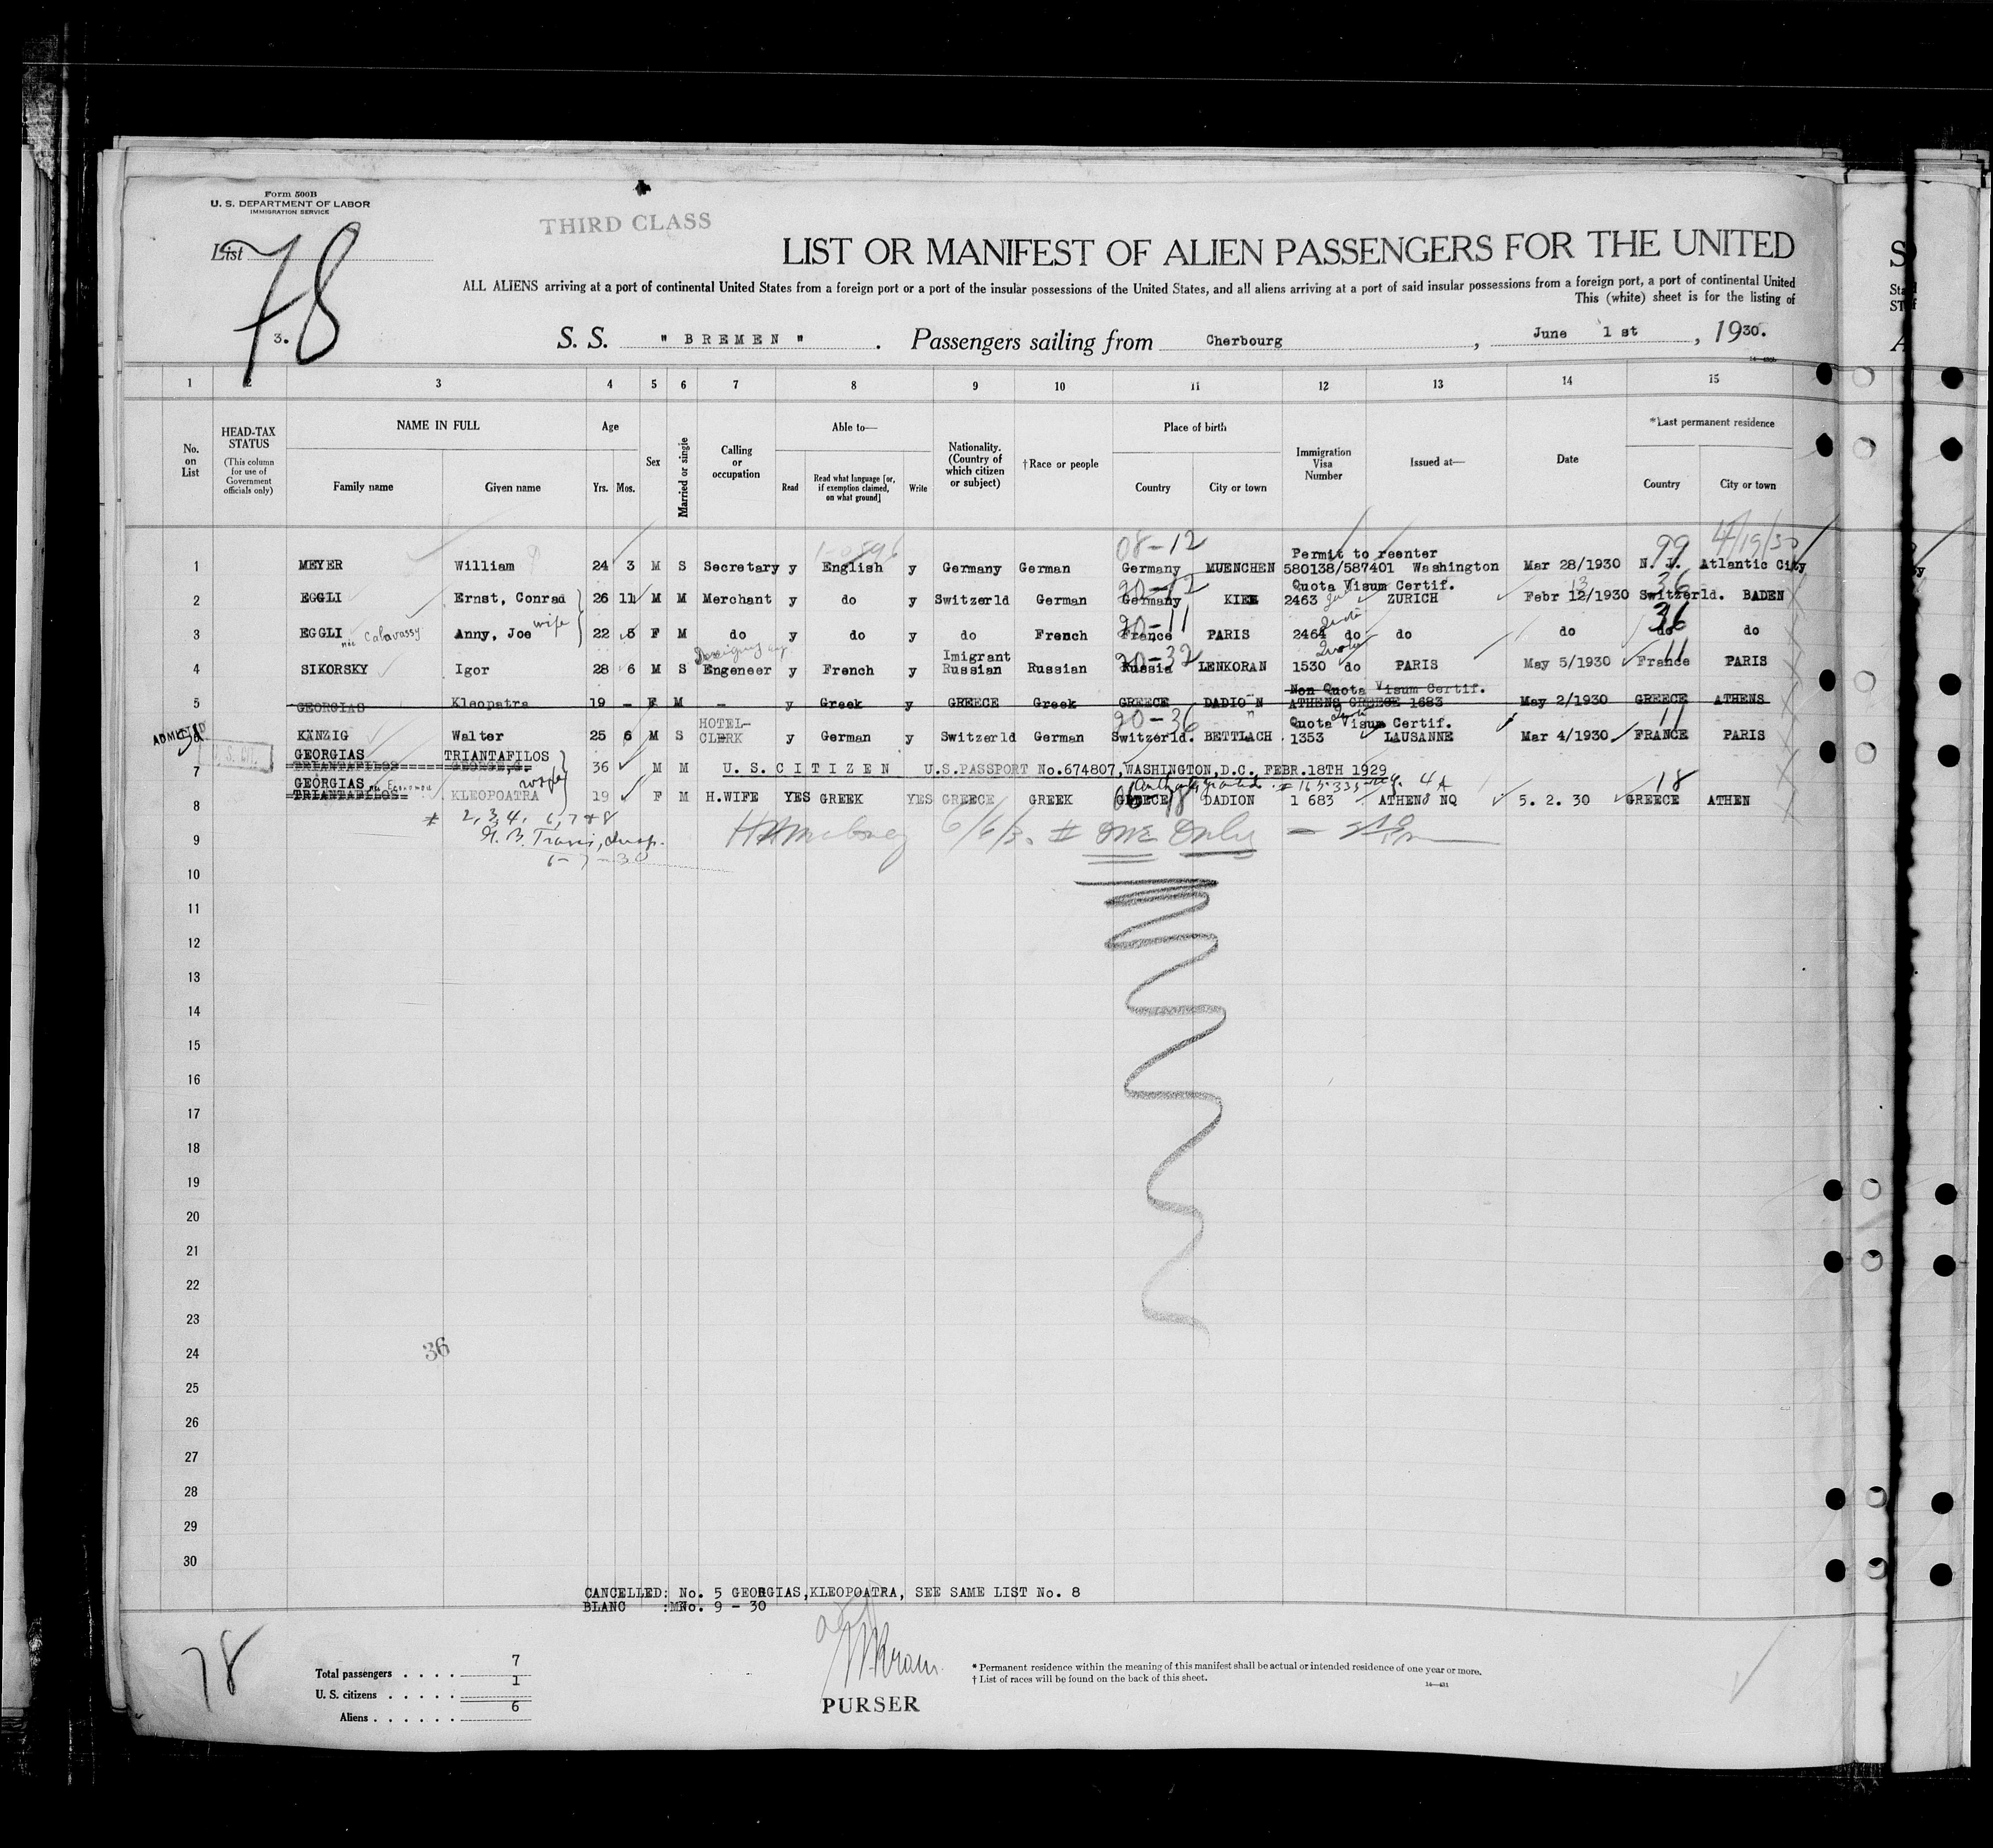 Form 500B
U. S. DEPARTMENT OF LABOR
IMMIGRATION SERVICE
THIRD CLASS
List 78
3.
LIST OR MANIFEST OF ALIEN PASSENGERS FOR THE UNITED
ALL ALIENS arriving at a port of continental United States from a foreign port or a port of the insular possessions of the United States, and all aliens arriving at a port of said insular possessions from a foreign port, a port of continental United
This (white) sheet is for the listing of
S. S. " BREMEN " . Passengers sailing from Cherbourg , June 1 st , 1930.
1 2 3 4 5 6 7 8 9 10 11 12 13 14 15
No. on List
HEAD-TAX STATUS (This column for use of Government officials only)
NAME IN FULL
Family name Given name
Age
Yrs. Mos.
Sex
Married or single
Calling or occupation
Able to—
Read Read what language [or, if exemption claimed, on what ground] Write
Nationality. (Country of which citizen or subject)
†Race or people
Place of birth
Country City or town
Immigration Visa Number
Issued at—
Date
*Last permanent residence
Country City or town
08-12 Permit to reenter 99 4/19/30
1 MEYER William 24 3 M S Secretary y English y Germany German Germany MUENCHEN 580138/587401 Washington Mar 28/1930 N. J. Atlantic City
20-12 Quota Visum Certif. 13 36
2 EGGLI Ernst, Conrad 26 11 M M Merchant y do y Switzerld German Germany KIEL 2463 ZURICH Febr 12/1930 Switzerld. BADEN
20-11 36
3 EGGLI nee Calavassy Anny, Joe wife 22 5 F M do y do y do French France PARIS 2464 do do do do do
20-32 Quota 11
4 SIKORSKY Igor 28 6 M S Engeneer y French y Imigrant Russian Russian Russia LENKORAN 1530 do PARIS May 5/1930 France PARIS
Non Quota Visum Certif.
5 GEORGIAS Kleopatra 19 - F M - y Greek y GREECE Greek GREECE DADION ATHENS GREECE 1683 May 2/1930 GREECE ATHENS
ADMITTED
20-36 Quota Visum Certif. 11
KÄNZIG Walter 25 6 M S HOTEL-CLERK y German y Switzerld German Switzerld. BETTLACH 1353 LAUSANNE Mar 4/1930 FRANCE PARIS
U. S. CIT.
GEORGIAS TRIANTAFILOS
7 TRIANTAFILOS GEORGE,A. 36 M M U. S. CITIZEN U.S.PASSPORT No.674807,WASHINGTON,D.C. FEBR.18TH 1929
GEORGIAS nee Economou wife 4A 18
8 TRIANTAFILOS KLEOPOATRA 19 F M H.WIFE YES GREEK YES GREECE GREEK GREECE DADION 1 683 ATHENS NQ 5. 2. 30 GREECE ATHEN
# 2, 3, 4, 6, 7 & 8
9 6/6/3. # one only
6-7-30
10
11
12
13
14
15
16
17
18
19
20
21
22
23
24
36
25
26
27
28
29
30
CANCELLED: No. 5 GEORGIAS,KLEOPOATRA, SEE SAME LIST No. 8
BLANC : No. 9 - 30
78
Total passengers . . . . 7
U. S. citizens . . . . . 1
Aliens . . . . . . 6
PURSER
* Permanent residence within the meaning of this manifest shall be actual or intended residence of one year or more.
† List of races will be found on the back of this sheet.